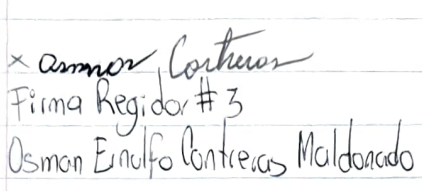 x Osmar Contreras
Firma Regidor # 3
Osman Einulfo Contreras Maldonado